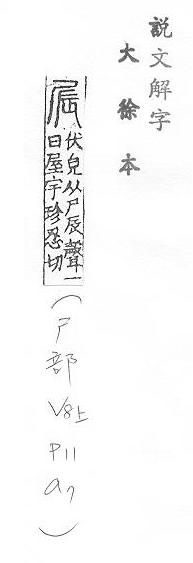 說文解字
大徐本
屒
伏皃从尸辰聲一
曰屋宇珍忍切
(尸部V8上P11a7)